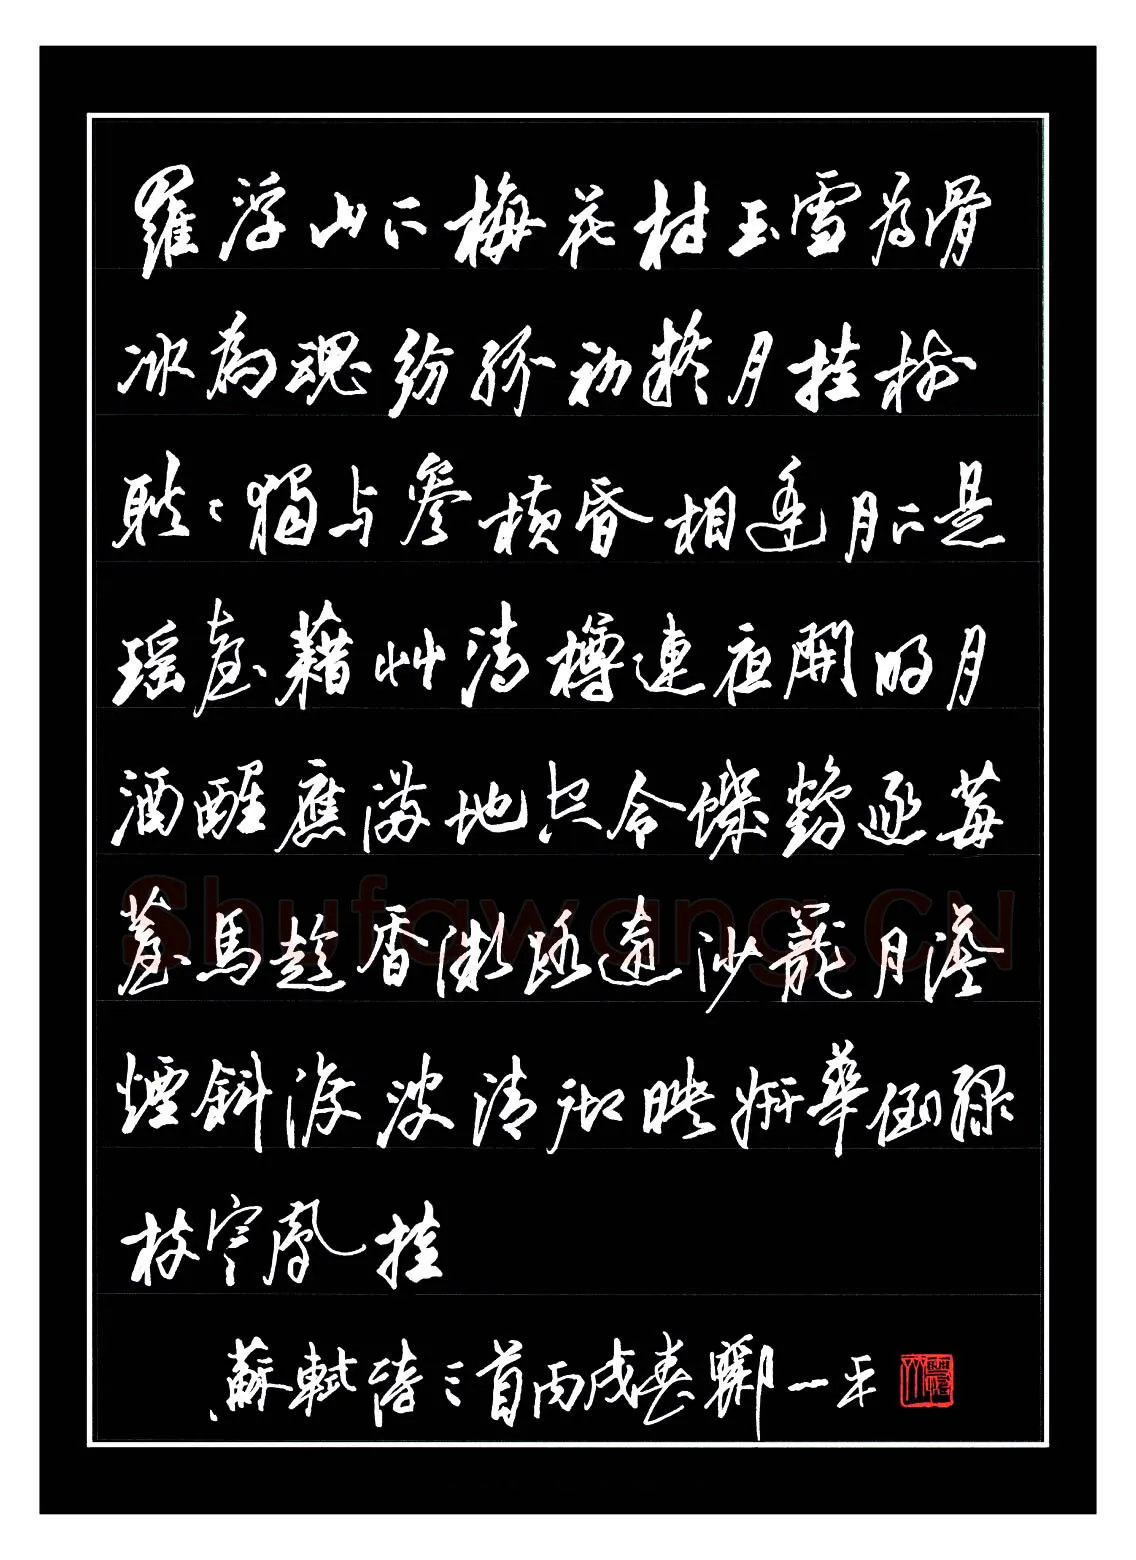 羅浮山下梅花村玉雪為骨
冰為魂紛紛初疑月挂樹
耿〻獨与參橫昏相逢月下是
瑤臺藉艸清樽連夜開明月
酒醒應滿地只令饑鶴逐莓
苔馬趁香微路遠沙籠月淡
煙斜渡波清彻映妍華倒綠
枝寒鳳挂
蘇軾詩三首丙戌春一平
Shufawang.CN